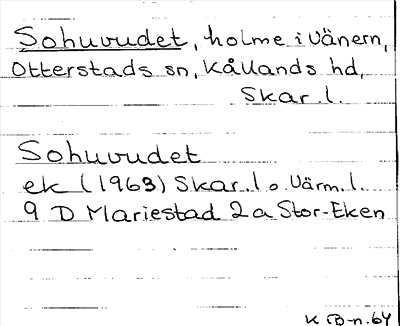 Sohuvudet, holme i Vänern,
Otterstads sn, Kållands hd,
Skar. l.
Sohuvudet
ek (1963) Skar. l. o. Värm. l.
9 D Mariestad 2a Stor-Eken